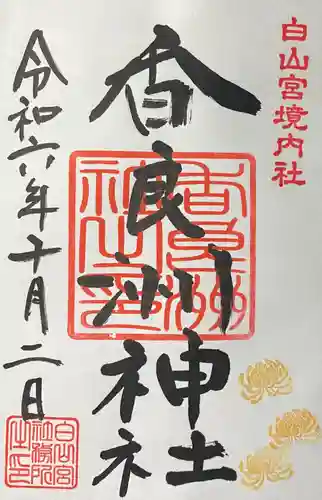 白山宮境内社
香良洲神社
令和六年十月二日
香良洲神社之印
白山宮社務所之印